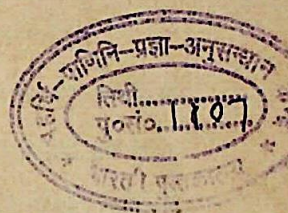 महर्षि-पाणिनि-प्रज्ञा-अनुसन्धान
तिथी..............
पु०सं०. 1107
भारती पुस्तकालय